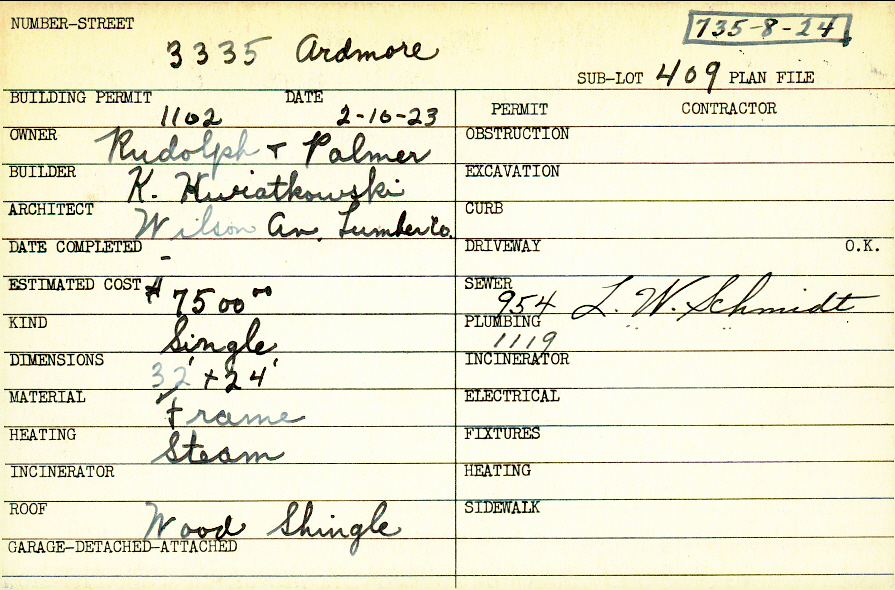 NUMBER-STREET
735-8-24
3335 Ardmore
SUB-LOT 409 PLAN FILE
BUILDING PERMIT DATE
1102 2-10-23
OWNER
Rudolph + Palmer
BUILDER
K. Kwiatkowski
ARCHITECT
Wilson Av. Lumber Co.
DATE COMPLETED
-
ESTIMATED COST
$7500 00
KIND
Single
DIMENSIONS
32' + 24'
MATERIAL
Frame
HEATING
Steam
INCINERATOR
ROOF
Wood Shingle
GARAGE-DETACHED-ATTACHED
PERMIT CONTRACTOR
OBSTRUCTION
EXCAVATION
CURB
DRIVEWAY O.K.
SEWER
954 L. W. Schmidt
PLUMBING
1119 " " "
INCINERATOR
ELECTRICAL
FIXTURES
HEATING
SIDEWALK